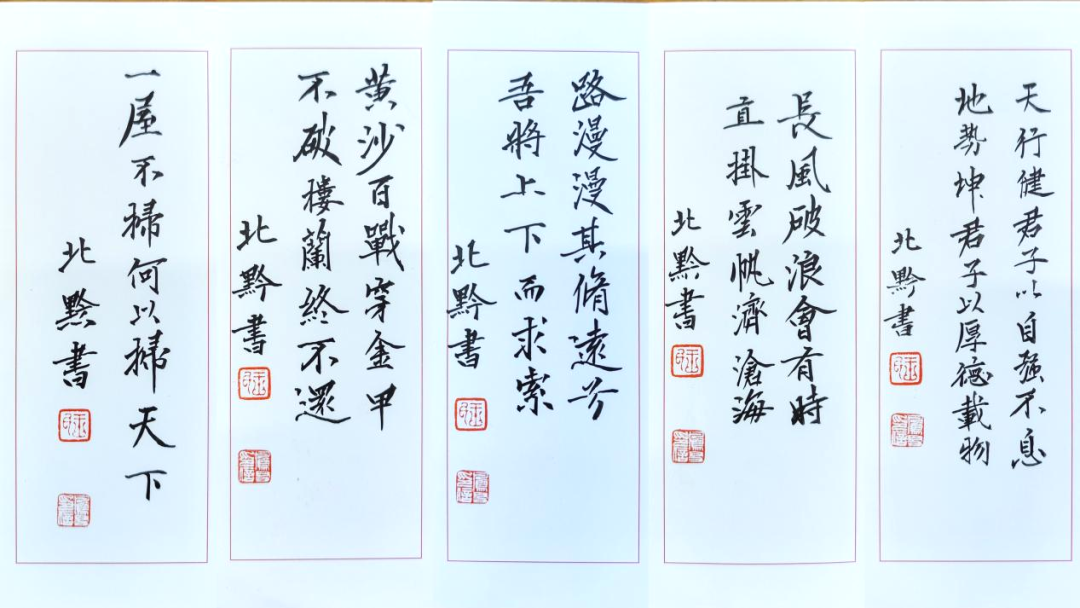 天行健君子以自强不息
地勢坤君子以厚德載物
北黔書
長風破浪會有時
直掛雲帆濟滄海
北黔書
路漫漫其脩遠兮
吾將上下而求索
北黔書
黄沙百戰穿金甲
不破樓蘭終不還
北黔書
一屋不掃何以掃天下
北黔書